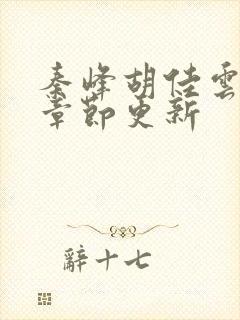 秦峰胡佳雲
章節更新
辭十七